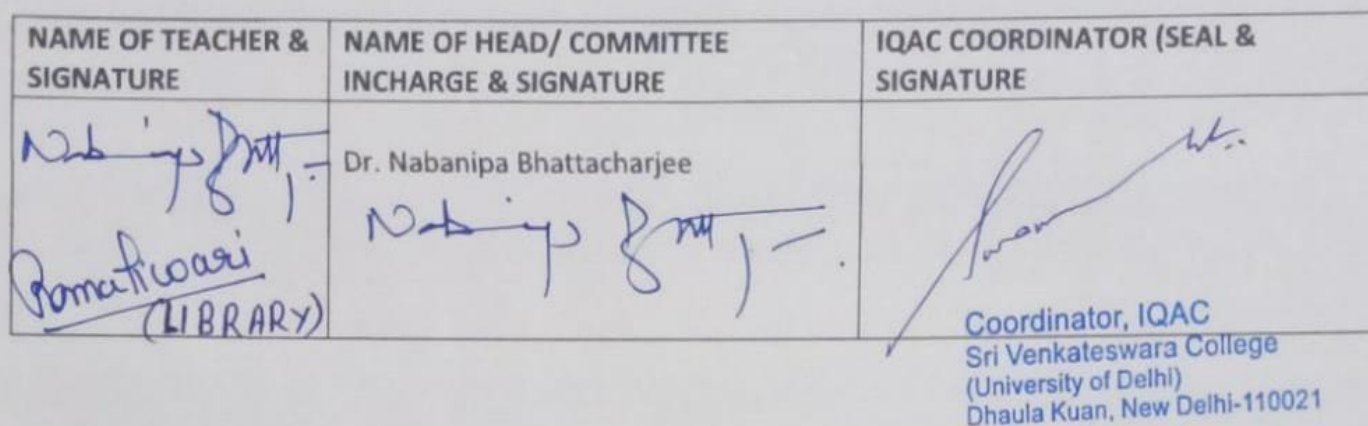 NAME OF TEACHER &
SIGNATURE
NAME OF HEAD/ COMMITTEE
INCHARGE & SIGNATURE
IQAC COORDINATOR (SEAL &
SIGNATURE
Rama Tiwari
(LIBRARY)
Dr. Nabanipa Bhattacharjee
Coordinator, IQAC
Sri Venkateswara College
(University of Delhi)
Dhaula Kuan, New Delhi-110021